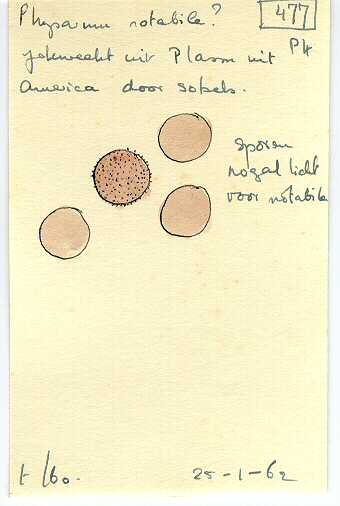 Physarum notabile?
477
gekweekt uit Plasm uit
America door Sobels.
sporen
nogal licht
voor notabile
t/60.
25-1-62